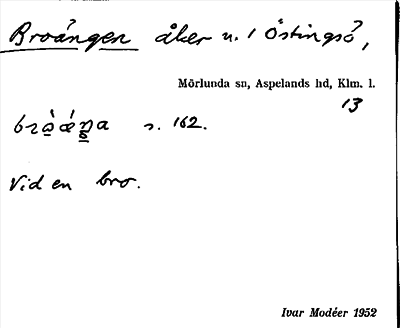 Broängen åker n. 1 Östingsö,
Mörlunda sn, Aspelands hd, Klm. l.
13
s. 162.
Vid en bro.
Ivar Modéer 1952